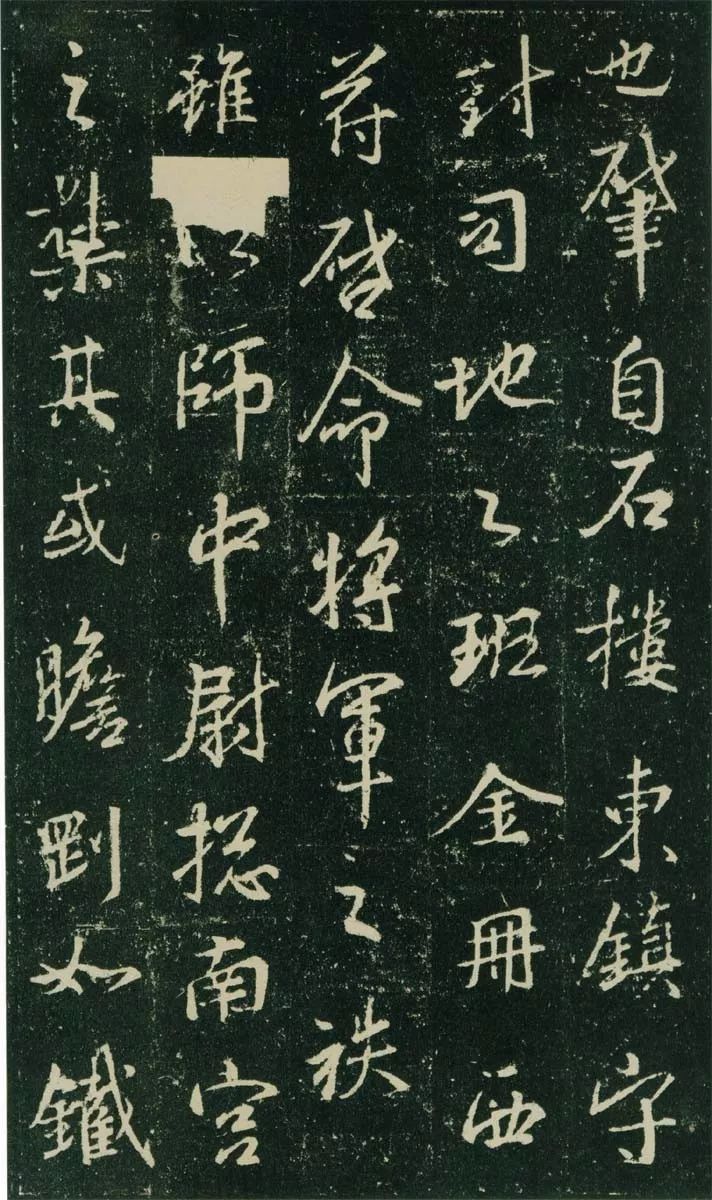 也肇自石樓東鎮守
封司地之班金冊西
符啓命將軍之袟
雖以師中尉揔南宮
之禁其或瞻剛如鐵